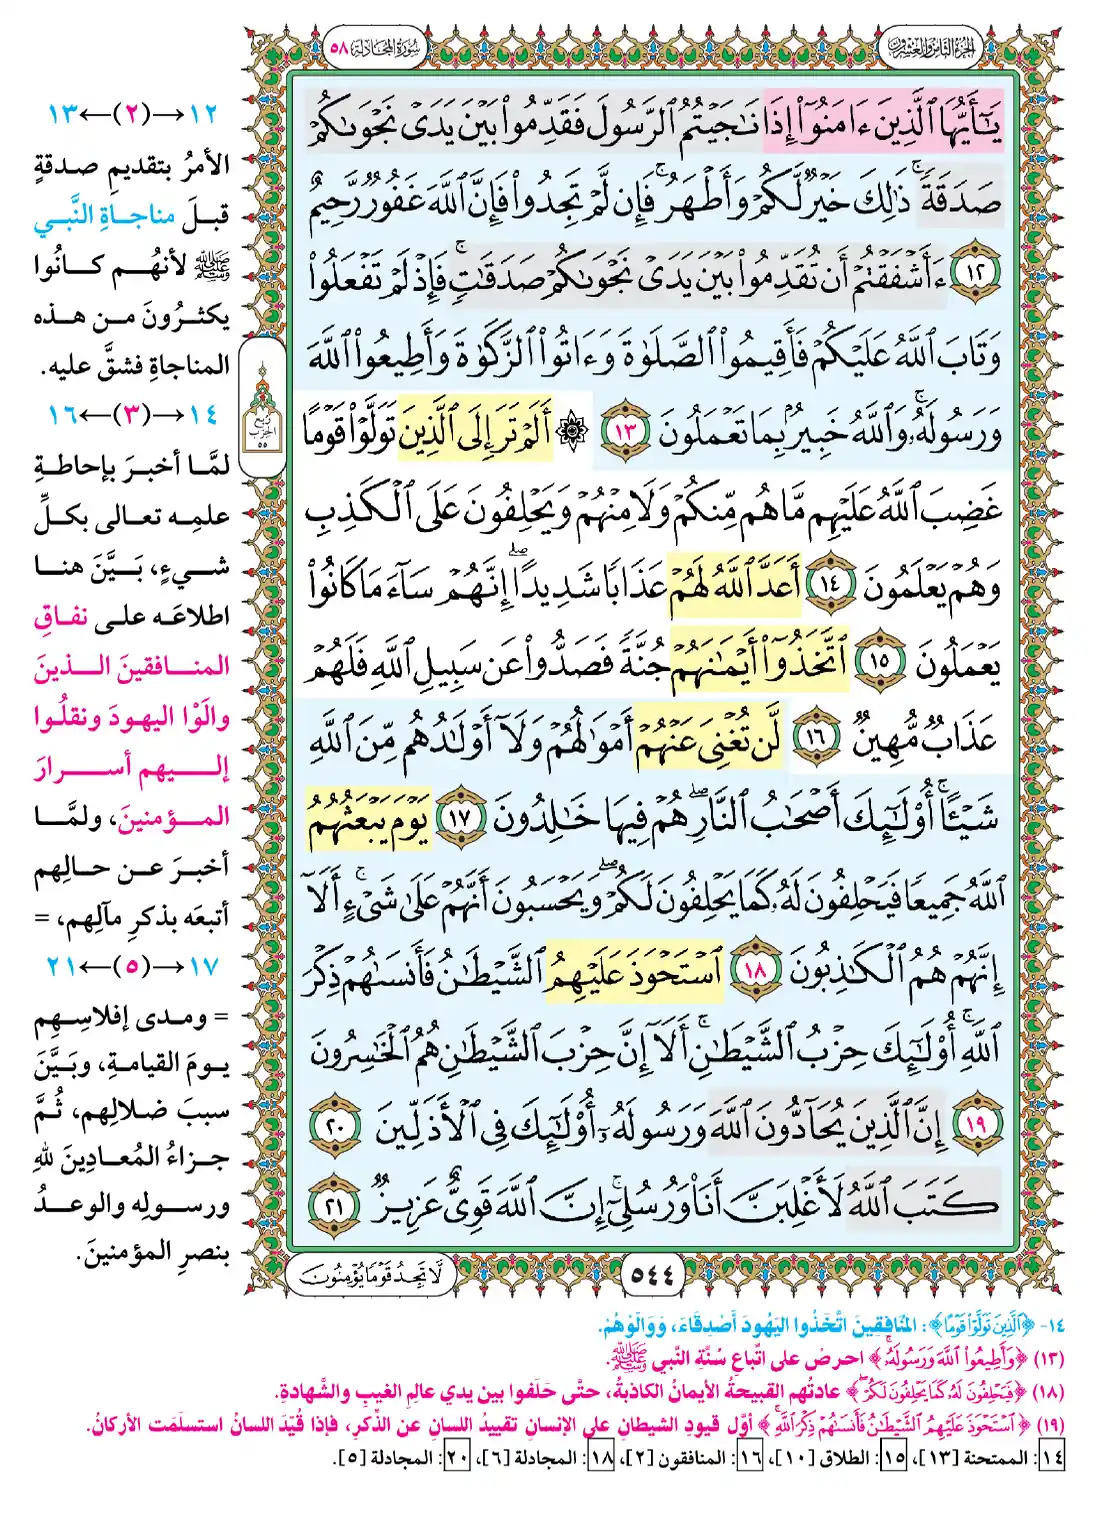 الجزء الثامن والعشرون
سورة المجادلة ٥٨
يَـٰٓأَيُّهَا ٱلَّذِينَ ءَامَنُوٓا۟ إِذَا نَـٰجَيْتُمُ ٱلرَّسُولَ فَقَدِّمُوا۟ بَيْنَ يَدَىْ نَجْوَىٰكُمْ
صَدَقَةً ۚ ذَٰلِكَ خَيْرٌ لَّكُمْ وَأَطْهَرُ ۚ فَإِن لَّمْ تَجِدُوا۟ فَإِنَّ ٱللَّهَ غَفُورٌ رَّحِيمٌ
١٢ ءَأَشْفَقْتُمْ أَن تُقَدِّمُوا۟ بَيْنَ يَدَىْ نَجْوَىٰكُمْ صَدَقَـٰتٍ ۚ فَإِذْ لَمْ تَفْعَلُوا۟
وَتَابَ ٱللَّهُ عَلَيْكُمْ فَأَقِيمُوا۟ ٱلصَّلَوٰةَ وَءَاتُوا۟ ٱلزَّكَوٰةَ وَأَطِيعُوا۟ ٱللَّهَ
وَرَسُولَهُۥ ۚ وَٱللَّهُ خَبِيرٌۢ بِمَا تَعْمَلُونَ ١٣ ۞ أَلَمْ تَرَ إِلَى ٱلَّذِينَ تَوَلَّوْا۟ قَوْمًا
غَضِبَ ٱللَّهُ عَلَيْهِم مَّا هُم مِّنكُمْ وَلَا مِنْهُمْ وَيَحْلِفُونَ عَلَى ٱلْكَذِبِ
وَهُمْ يَعْلَمُونَ ١٤ أَعَدَّ ٱللَّهُ لَهُمْ عَذَابًا شَدِيدًا ۖ إِنَّهُمْ سَآءَ مَا كَانُوا۟
يَعْمَلُونَ ١٥ ٱتَّخَذُوٓا۟ أَيْمَـٰنَهُمْ جُنَّةً فَصَدُّوا۟ عَن سَبِيلِ ٱللَّهِ فَلَهُمْ
عَذَابٌ مُّهِينٌ ١٦ لَّن تُغْنِىَ عَنْهُمْ أَمْوَٰلُهُمْ وَلَآ أَوْلَـٰدُهُم مِّنَ ٱللَّهِ
شَيْـًٔا ۚ أُو۟لَـٰٓئِكَ أَصْحَـٰبُ ٱلنَّارِ ۖ هُمْ فِيهَا خَـٰلِدُونَ ١٧ يَوْمَ يَبْعَثُهُمُ
ٱللَّهُ جَمِيعًا فَيَحْلِفُونَ لَهُۥ كَمَا يَحْلِفُونَ لَكُمْ ۖ وَيَحْسَبُونَ أَنَّهُمْ عَلَىٰ شَىْءٍ ۚ أَلَآ
إِنَّهُمْ هُمُ ٱلْكَـٰذِبُونَ ١٨ ٱسْتَحْوَذَ عَلَيْهِمُ ٱلشَّيْطَـٰنُ فَأَنسَىٰهُمْ ذِكْرَ
ٱللَّهِ ۚ أُو۟لَـٰٓئِكَ حِزْبُ ٱلشَّيْطَـٰنِ ۚ أَلَآ إِنَّ حِزْبَ ٱلشَّيْطَـٰنِ هُمُ ٱلْخَـٰسِرُونَ
١٩ إِنَّ ٱلَّذِينَ يُحَآدُّونَ ٱللَّهَ وَرَسُولَهُۥٓ أُو۟لَـٰٓئِكَ فِى ٱلْأَذَلِّينَ ٢٠
كَتَبَ ٱللَّهُ لَأَغْلِبَنَّ أَنَا۠ وَرُسُلِىٓ ۚ إِنَّ ٱللَّهَ قَوِىٌّ عَزِيزٌ ٢١
٥٤٤
لَّا تَجِدُ قَوْمًا يُؤْمِنُونَ
ربع
الحزب
٥٥
١٢→(٢)←١٣
الأمرُ بتقديمِ صدقةٍ
قبلَ مناجاةِ النَّبي
ﷺ لأنهُم كانُوا
يكثرُونَ من هذه
المناجاةِ فشقَّ عليه.
١٤→(٣)←١٦
لمَّا أخبرَ بإحاطةِ
علمِه تعالى بكلِّ
شيءٍ، بَيَّنَ هنا
اطلاعَه على نفاقِ
المنافقينَ الذينَ
والَوْا اليهودَ ونقلُوا
إليهم أسرارَ
المؤمنينَ، ولمَّا
أخبرَ عن حالِهم
أتبعَه بذكرِ مآلِهم، =
١٧→(٥)←٢١
= ومدى إفلاسِهِم
يومَ القيامةِ، وبَيَّنَ
سببَ ضلالِهم، ثُمَّ
جزاءُ المُعادِينَ للهِ
ورسولِه والوعدُ
بنصرِ المؤمنينَ.
١٤- ﴿ٱلَّذِينَ تَوَلَّوْا۟ قَوْمًا﴾: المُنَافِقِينَ اتَّخَذُوا اليَهُودَ أَصْدِقَاءَ، وَوَالَوْهُمْ.
(١٣) ﴿وَأَطِيعُوا۟ ٱللَّهَ وَرَسُولَهُۥ ۚ﴾ احرصْ على اتِّباعِ سُنَّةِ النَّبي ﷺ.
(١٨) ﴿فَيَحْلِفُونَ لَهُۥ كَمَا يَحْلِفُونَ لَكُمْ ۖ﴾ عادتُهم القبيحةُ الأيمانُ الكاذبةُ، حتَّى حَلَفوا بين يدي عالِمِ الغيبِ والشَّهادةِ.
(١٩) ﴿ٱسْتَحْوَذَ عَلَيْهِمُ ٱلشَّيْطَـٰنُ فَأَنسَىٰهُمْ ذِكْرَ ٱللَّهِ ۚ﴾ أوَّل قيودِ الشيطانِ على الإنسانِ تقييدُ اللسانِ عن الذِّكرِ، فإذا قُيِّدَ اللسانُ استسلمَت الأركانُ.
١٤: الممتحنة [١٣]، ١٥: الطلاق [١٠]، ١٦: المنافقون [٢]، ١٨: المجادلة [٦]، ٢٠: المجادلة [٥].